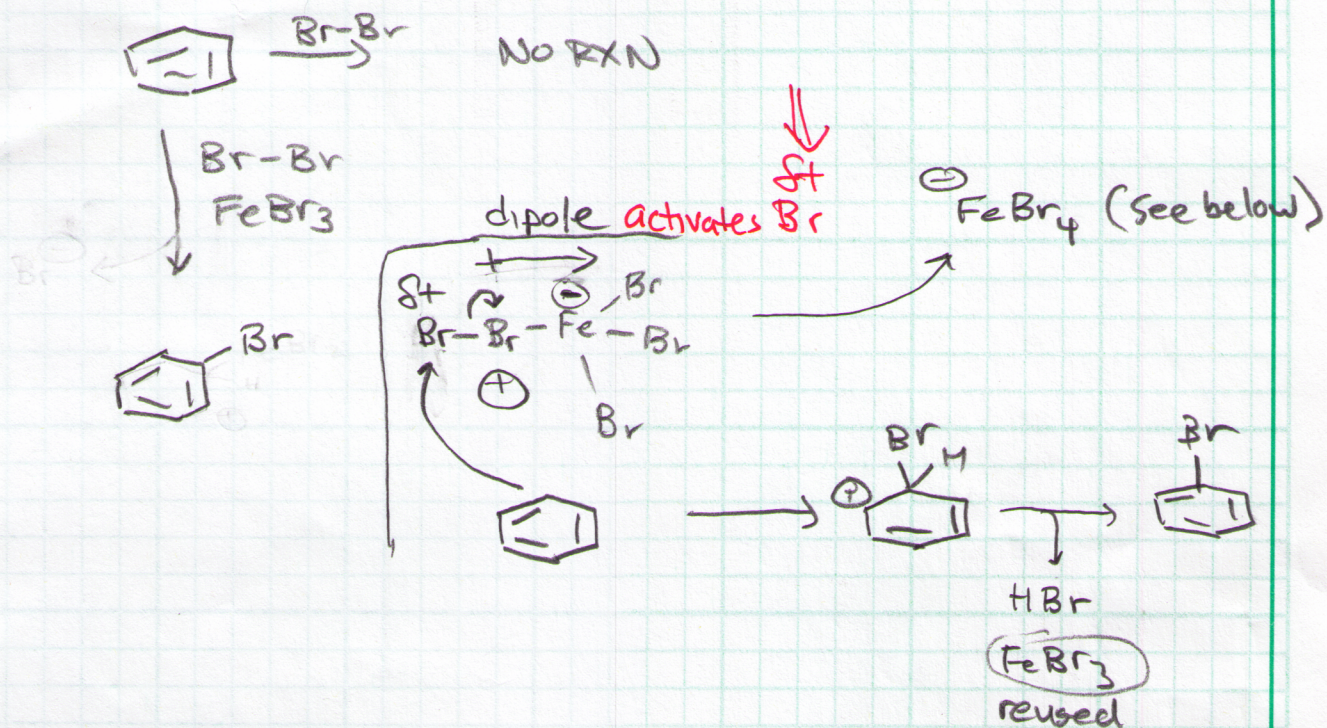 Br-Br
NO RXN
Br-Br
FeBr3
Br
dipole activates Br
δ+
⊖FeBr4 (see below)
δ+
Br-Br-Fe-Br
⊖
⊕
Br
Br
Br
Br
H
⊕
Br
HBr
FeBr3
reused